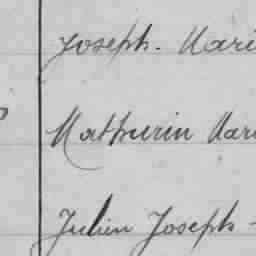 Joseph. Mari
Mathurin Mari
Julien Joseph -